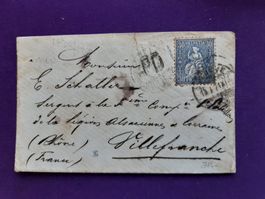 PD
Monsieur
E. Schaller
Sergent à la 1ère Compie
de la légion Alsacienne & Lorraine
(Rhône) Villefranche
(France)